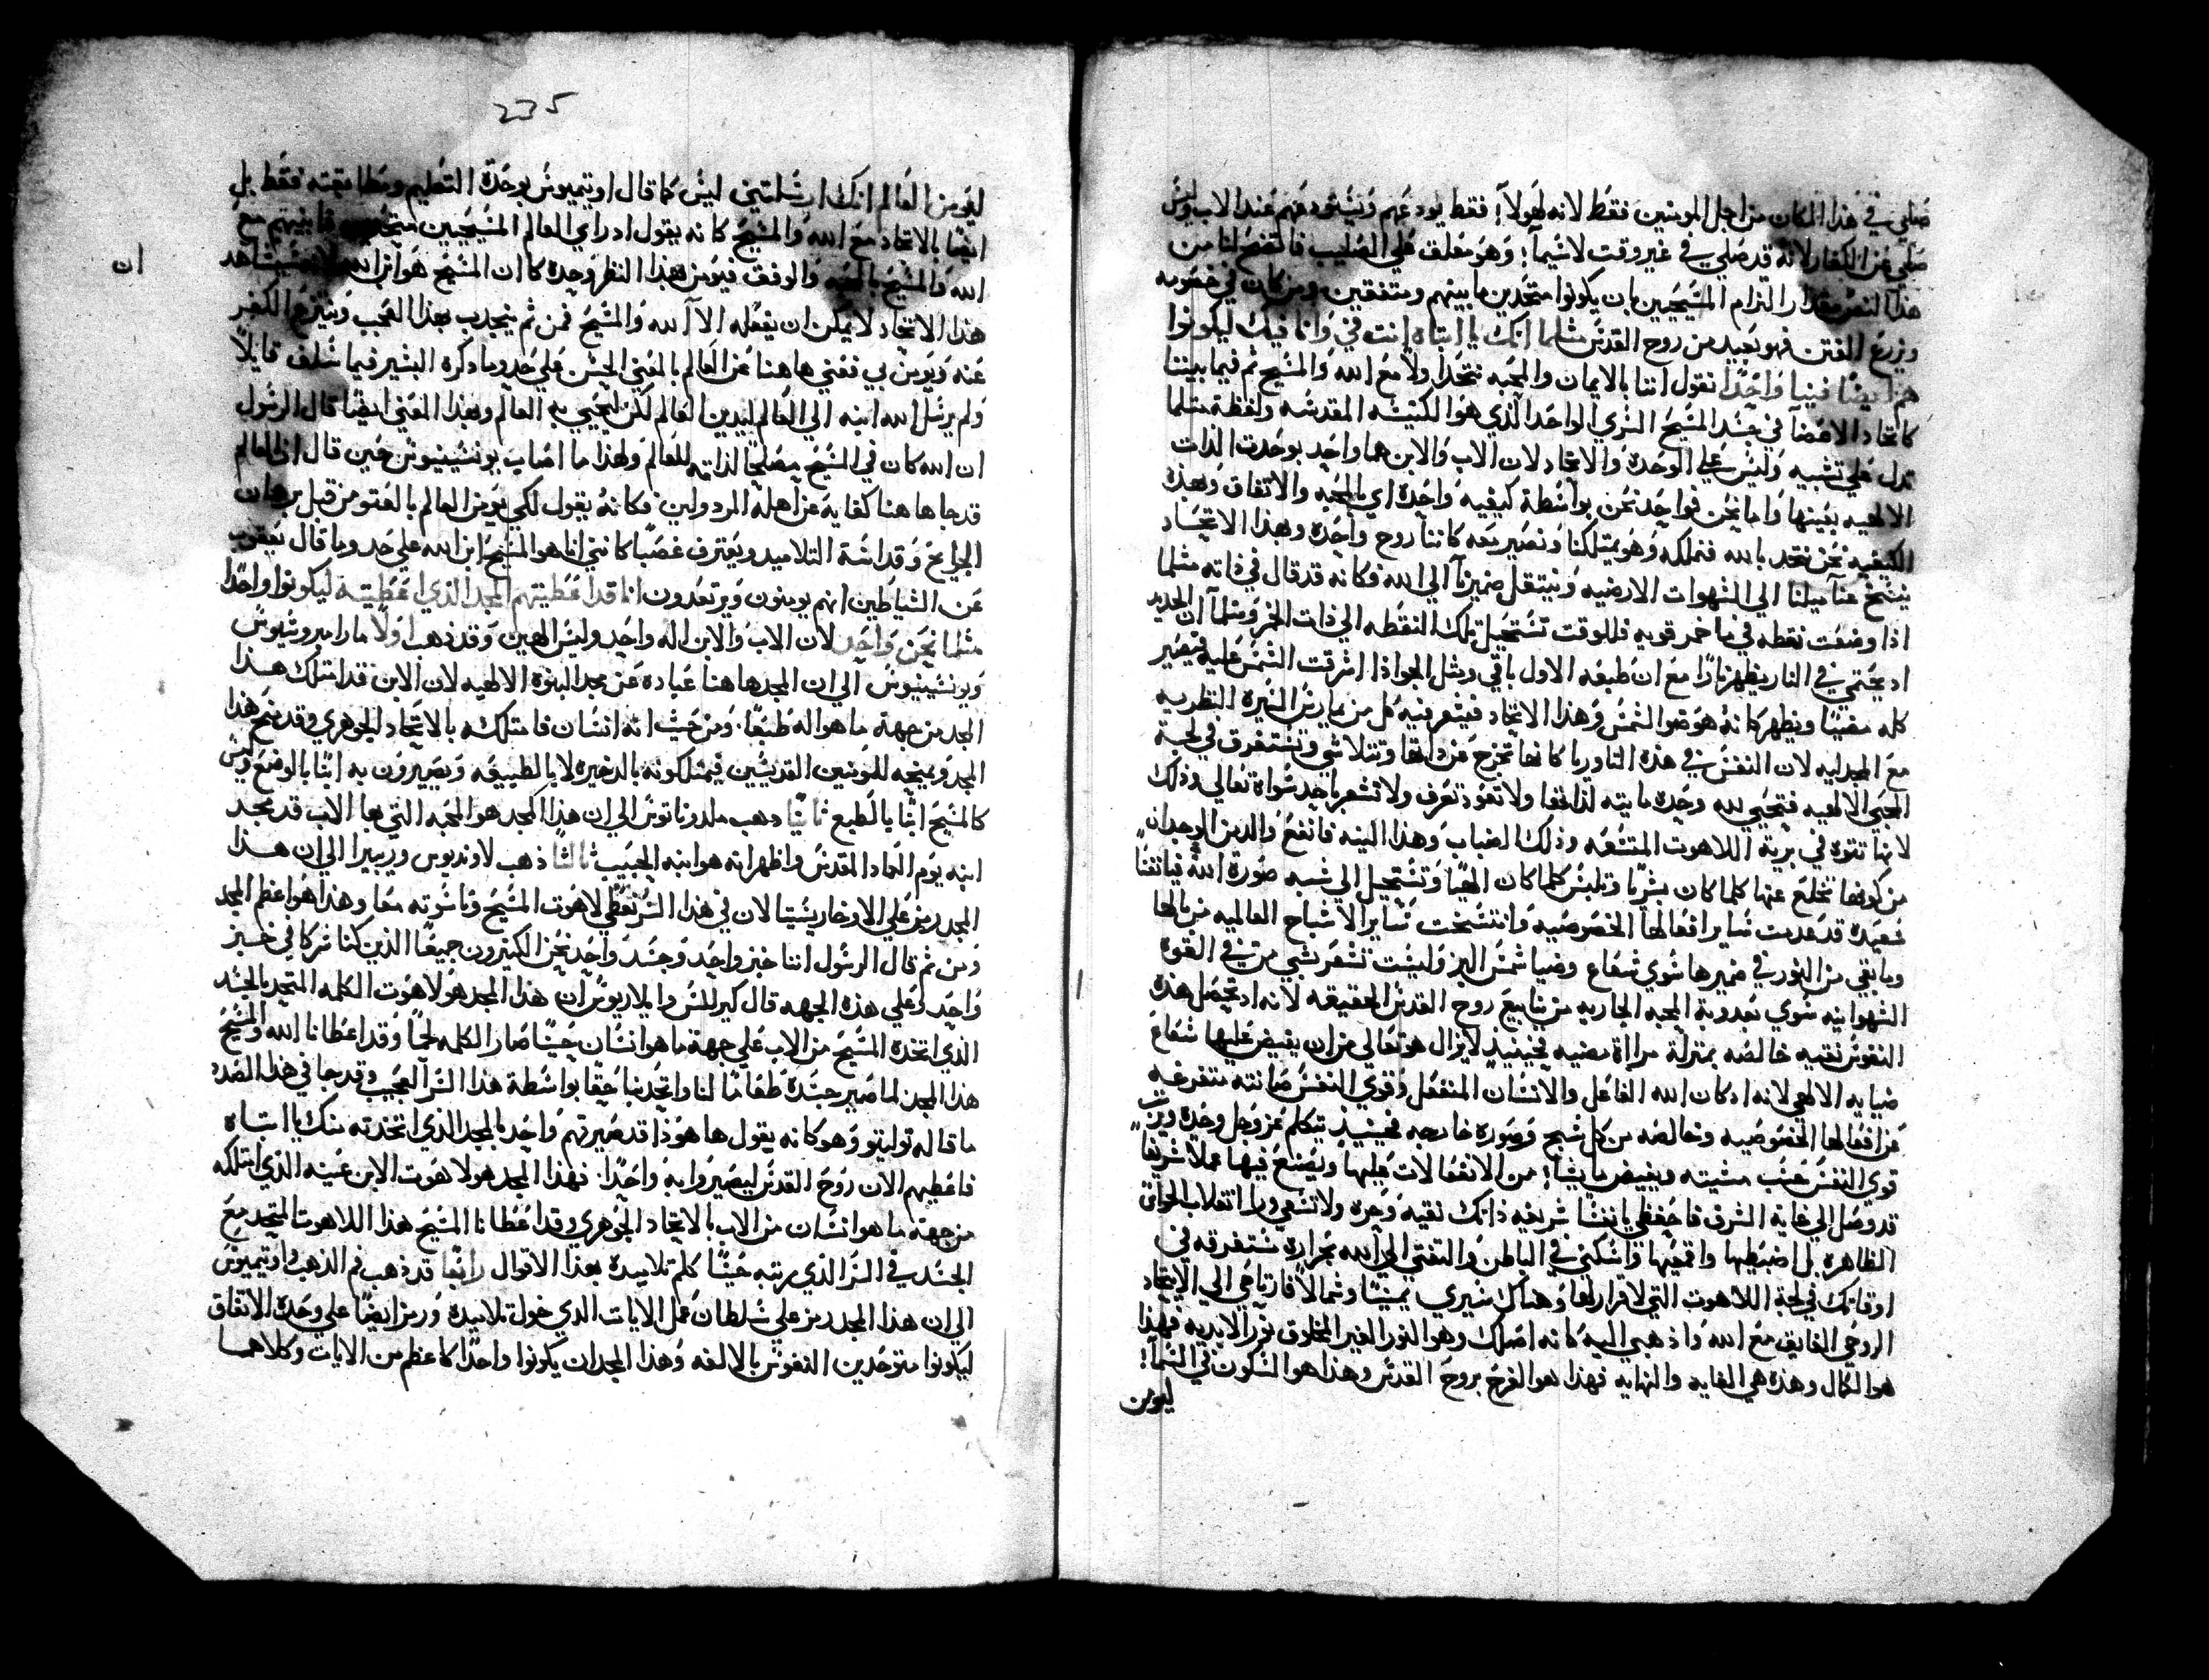 صلي في هذا المكان من اجل المومنين فقط لانه لهولاء فقط يودعهم ويستودعهم عند الاب وليس
صلي عن الكفار لانه قد صلي في غير وقت لاسيما وهو معلق علي الصليب فالتفحص لنا من
هذا النص مقدار التزام المسيحيين بان يكونوا متحدين ما بينهم ومتفقين ومن كان في خصومه
وزرع الفتن فهو بعيد من روح القدس مثلما انك يا ابتاه انت في وانا فيك ليكونوا
هم ايضا فينا واحدا نقول اننا بالايمان والمحبه نتحد اولا مع الله والمسيح ثم فيما بيننا
كاتحاد الاعضا في جسد المسيح السري الواحد الذي هو الكنيسه المقدسه ولفظة مثلما
تدل علي تشبيه وليس علي الوحدة والاتحاد لان الاب والابن هما واحد بوحدت الذات
الالهيه بعينها واما نحن فواحد نحن بواسطة كيفيه واحدة اي بالمحبه والاتفاق وبهذه
الكيفيه نحن نتحد بالله فنملكه وهو يمتلكنا ونصير معه كاننا روح واحدة وبهذا الاتحاد
ينسخ عنا ميلنا الي الشهوات الارضيه وينتقل ضميرنا الي الله فكانه قد قال في ذاته مثلما
اذا وضعت نقطه في ما خمر قويه فللوقت تستحيل تلك النقطه الي ذات الخمر ومثلما ان الحديد
اد يحتمي في النار يظهر نارا مع ان طبعه الاول باقي ومثل الجو اذا اشرقت الشمس عليه فيصير
كله مضيا ويظهر كانه هو ضو الشمس وهذا الاتحاد فيشعر فيه كل من يمارس السيرة النظريه
مع المجدليه لان النفس في هذه التاوريا كانها تخرج عن ذاتها وتتلاشي وتستغرق في لجة
المجي الالهيه فتحيي لله وحده مايته لذاتها ولا تعود تعرف ولا تشعر باحد سواة تعالي وذلك
لانها تتوه في برية اللاهوت المتسعه وذلك الضباب وهذا اليه فانفع والدمن الوجدان
من كونها تخلع عنها كلما كان بشريا وتلبس كلما كان الهيا وتستحيل الي شبه صورة الله فيا نفسا
سعيدة قد عدمت ساير افعالها الخصوصيه وانتسخت ساير الاشباح العالميه من بالها
وما بقي من النور في ضميرها سوي شعاع وضيا شمس البر وليست تشعر بشي من في القوة
الشهوانيه سوي بعدوبة المحبه الجاريه من ينابيع روح القدس الحقيقه لانه اد تحصل هذه
النفوس نقيه خالصه بمنزلة مراة مضيه فحينيذ لايزال هو تعالي من ان يفيض عليها شعاع
ضيايه الالهي لانه ادكان الله الفاعل والانسان المنفعل وقوي النفس صانته متفرغه
عن افعالها الخصوصيه وخالصه من كل شبح وصورة خارجه فحينيذ يتكلم عز وجل وحدة ويرتب
قوي النفس حسب مشيته ويفيض ما يشا من الانفعالات عليها ويصنع فيها عملا شريفا
قد وصل الي غاية الشرف فاحفظي يا نفسا شريفه ذاتك نقيه وحره ولا تسعي ورا انقلاب الحواس
الظاهرة بل اضبطيها واقمعيها واسكني في الباطن والتفتي الي الله بحرارة مستغرقه في
اوقاتك في لجة اللاهوت التي لا قرار لها وهناك سيري يمينا وشمالا فارتاحي الي الاتحاد
الروحي الفايق مع الله واذهبي اليه كانه اصلك وهو النور الغير المخلوق نور الابديه فهذا
هو الكمال وهذه هي الغايه والنهايه فهذا هو الفرح بروح القدس وهذا هو السكون في السما
ليومن
235
ليومن العالم انك ارسلتني ليس كما قال اوتيميوس بوحدة التعليم ومطابقته فقط بل
ايضا بالاتحاد مع الله والمسيح كانه يقول اد راي العالم المسيحيين متحدين مابينهم مع
الله والمسيح بالمحبه والوفق فيومن بهذا النظر وحدة كا ان المسيح هو ابن الله لانه يشاهد
ان
هذا الاتحاد لا يمكن ان يفعله الا الله والمسيح فمن ثم ينجدب بهذا العجب وينزع الكفر
عنه ويومن بي فعني هاهنا عن العالم بالمعني الحسن علي حد وما دكره البشير فيما سلف قايلا
ولم يرسل الله ابنه الي العالم ليدين العالم لكن ليحيي به العالم وبهذا المعني ايضا قال الرسول
ان الله كان في المسيح مصالحا لذاته للعالم ولهذا ما اصاب يونسينيوس حين قال ان العالم
قد جا هاهنا كفايه عن اهله المردولين فكانه يقول لكي يومن العالم بالعتو من قبل برهان
الجرايح وقداسة التلاميد ويعترف غصبا كانني انا هو المسيح ابن الله علي حد وما قال يعقوب
عن الشياطين انهم يومنون ويرتعدون انا قد اعطيتهم المجد الذي اعطيتني ليكونوا واحدا
مثلما نحن واحد لان الاب والابن اله واحد وليس الهين وقد ذهب اولا مارامبروسيوس
ويونسينيوس الي ان المجد هاهنا عبادة عن مجد البنوة الالهيه لان الابن قد امتلك هذا
المجد من جهة ما هو اله طبعا ومن حيث انه انسان فامتلكه بالاتحاد الجوهري وقد منح هذا
المجد ويمنحه للمومنين القديسين فيمتلكونه بالدخيره لا بالطبيعه ويصيرون به ابنا بالوضع وليس
كالمسيح ابنا بالطبع ثانيا دهب ملدوناتوس الي ان هذا المجد هو المحبه التي بها الاب قد مجد
ابنه يوم العماد المقدس واظهر انه هو ابنه الحبيب ثالثا ذهب لاونديوس وريبيرا الي ان هذا
المجد رمز علي الاوخاريستيا لان في هذا السر نعطي لاهوت المسيح وناسوته معا وهذا هو اعظم المجد
ومن ثم قال الرسول اننا خبز واحد وجسد واحد نحن الكثيرون جميعا الذين كنا شركا في خبز
واحد وعلي هذه الجهه قال كيرللس وايلاريوس ان هذا المجد هو لاهوت الكلمه المتحد بالجسد
الذي اتخذه المسيح من الاب علي جهة ما هو انسان حينا صار الكلمه لحما وقد اعطانا الله والمسيح
هذا المجد لما صير جسده طعاما لنا واتحد بنا حقا بواسطة هذا السر العجيب وقد جا في هذا الصدد
ما قاله توليتو وهو كانه يقول ها هوذا قد صيرتهم واحد بالمجد الذي اتخذته منك يا ابتاه
فاعطيهم الان روح القدس ليصيروا به واحدا فهذا المجد هو لاهوت الابن عينه الذي امتلكه
من جهة ما هو انسان من الاب بالاتحاد الجوهري وقد اعطانا المسيح هذا اللاهوت المتحد مع
الجسد في السر الذي رتبه حينا كلم تلاميده بهذا الاقوال رابعا قد ذهب فم الذهب واوتيميوس
الي ان هذا المجد رمز علي سلطان عمل الايات الذي خول تلاميده ورمز ايضا علي وحدة الاتفاق
ليكونوا متوحدين النفوس بالالفه وهذا المجد ان يكونوا واحدا كاعظم من الايات وكلاهما